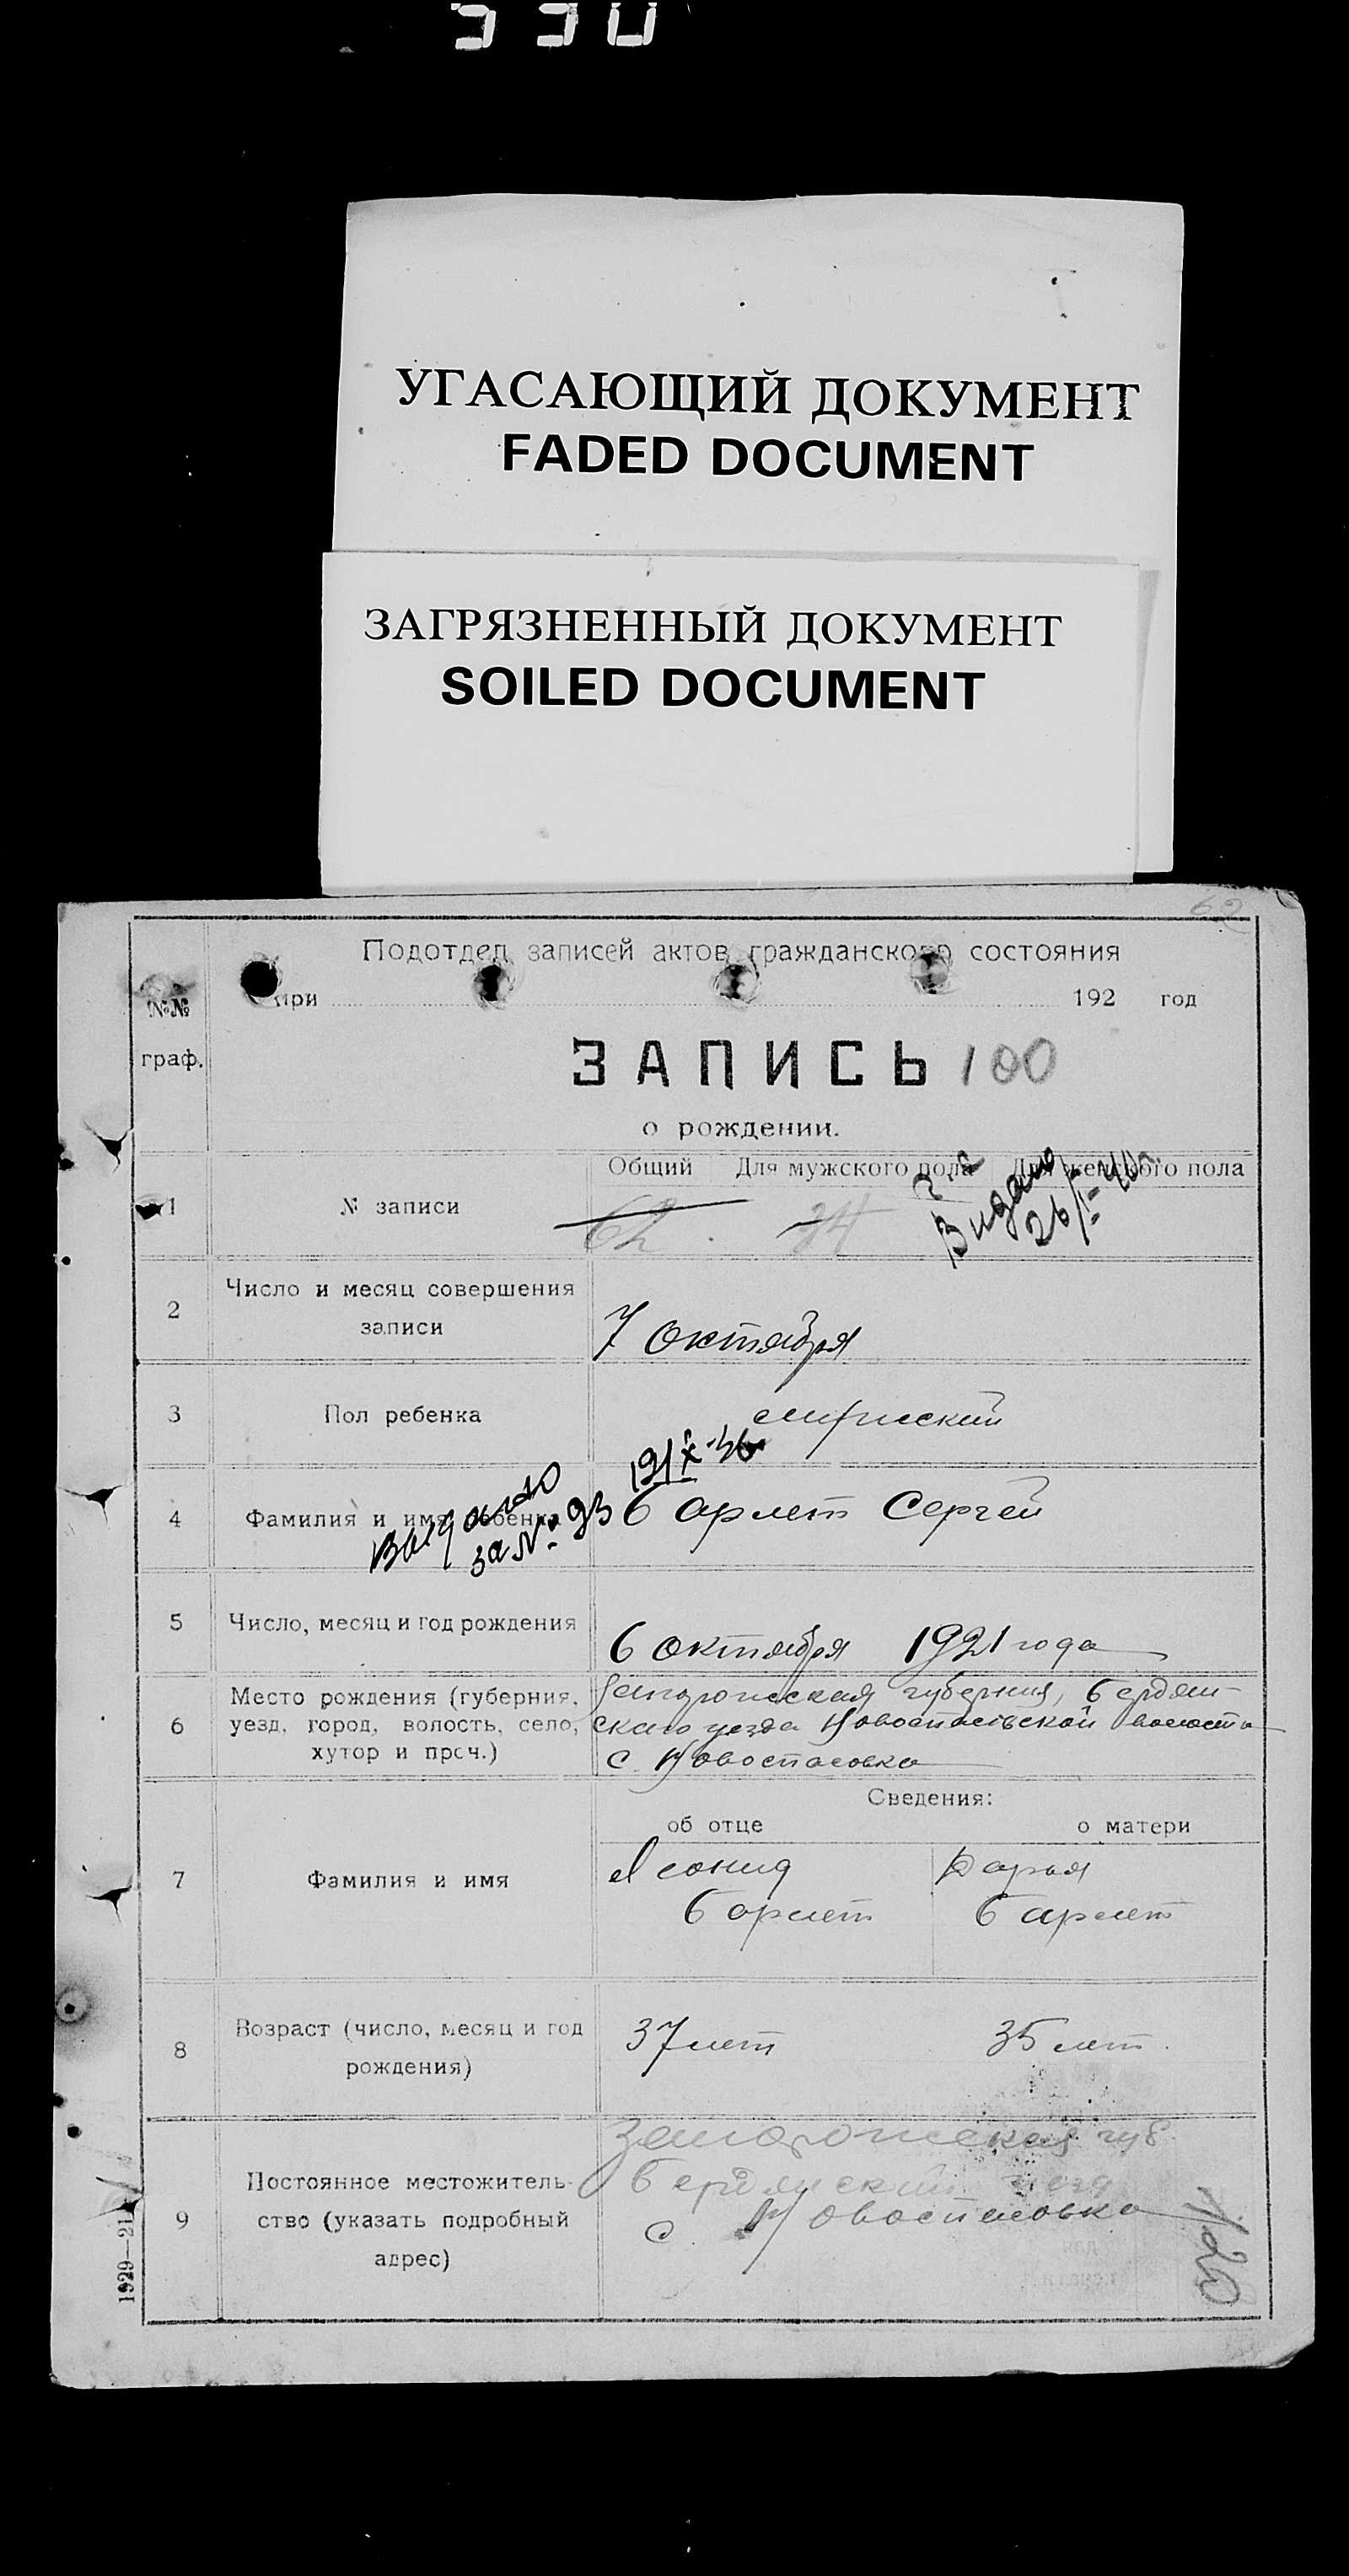 330
УГАСАЮЩИЙ ДОКУМЕНТ
FADED DOCUMENT
ЗАГРЯЗНЕННЫЙ ДОКУМЕНТ
SOILED DOCUMENT
62
Подотдел записей актов гражданского состояния
№№ при 192 год
граф.
ЗАПИСЬ 100
о рождении.
Общий Для мужского пола Для женского пола
1 № записи 62 34
Видано
26/I-40
2 Число и месяц совершения
записи
7 октября
3 Пол ребенка мужской
Выдано 19/X-36
за № 93
4 Фамилия и имя ребенка Барлет Сергей
5 Число, месяц и год рождения 6 октября 1921 года
6 Место рождения (губерния,
уезд, город, волость, село,
хутор и проч.)
Запорожская губерния, Бердян-
ского уезда Новоспасовской волости
с. Новоспасовка
Сведения:
об отце о матери
7 Фамилия и имя Леонид Дарья
Барлет Барлет
8 Возраст (число, месяц и год
рождения)
37 лет 35 лет
9 Постоянное местожитель-
ство (указать подробный
адрес)
Запорожская губ
Бердянский уезд
с. Новоспасовка
120
1929—21